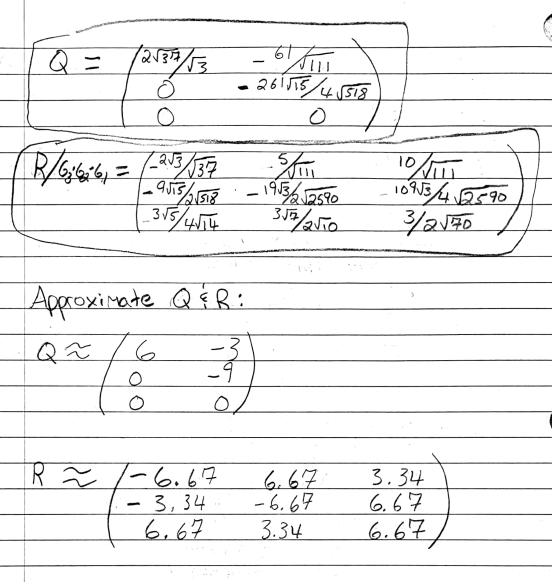 Q = (2√37/√3 -61/√111
0 -261√15/4√518
0 0)
R/G₃·G₂·G₁ = (-2√3/√37 -5/√111 10/√111
-9√15/2√518 -19√3/2√2590 -109√3/4√2590
-3√5/4√14 3√7/2√10 3/2√70)
Approximate Q & R:
Q ≈ (6 -3
0 -9
0 0)
R ≈ (-6.67 6.67 3.34
-3.34 -6.67 6.67
6.67 3.34 6.67)